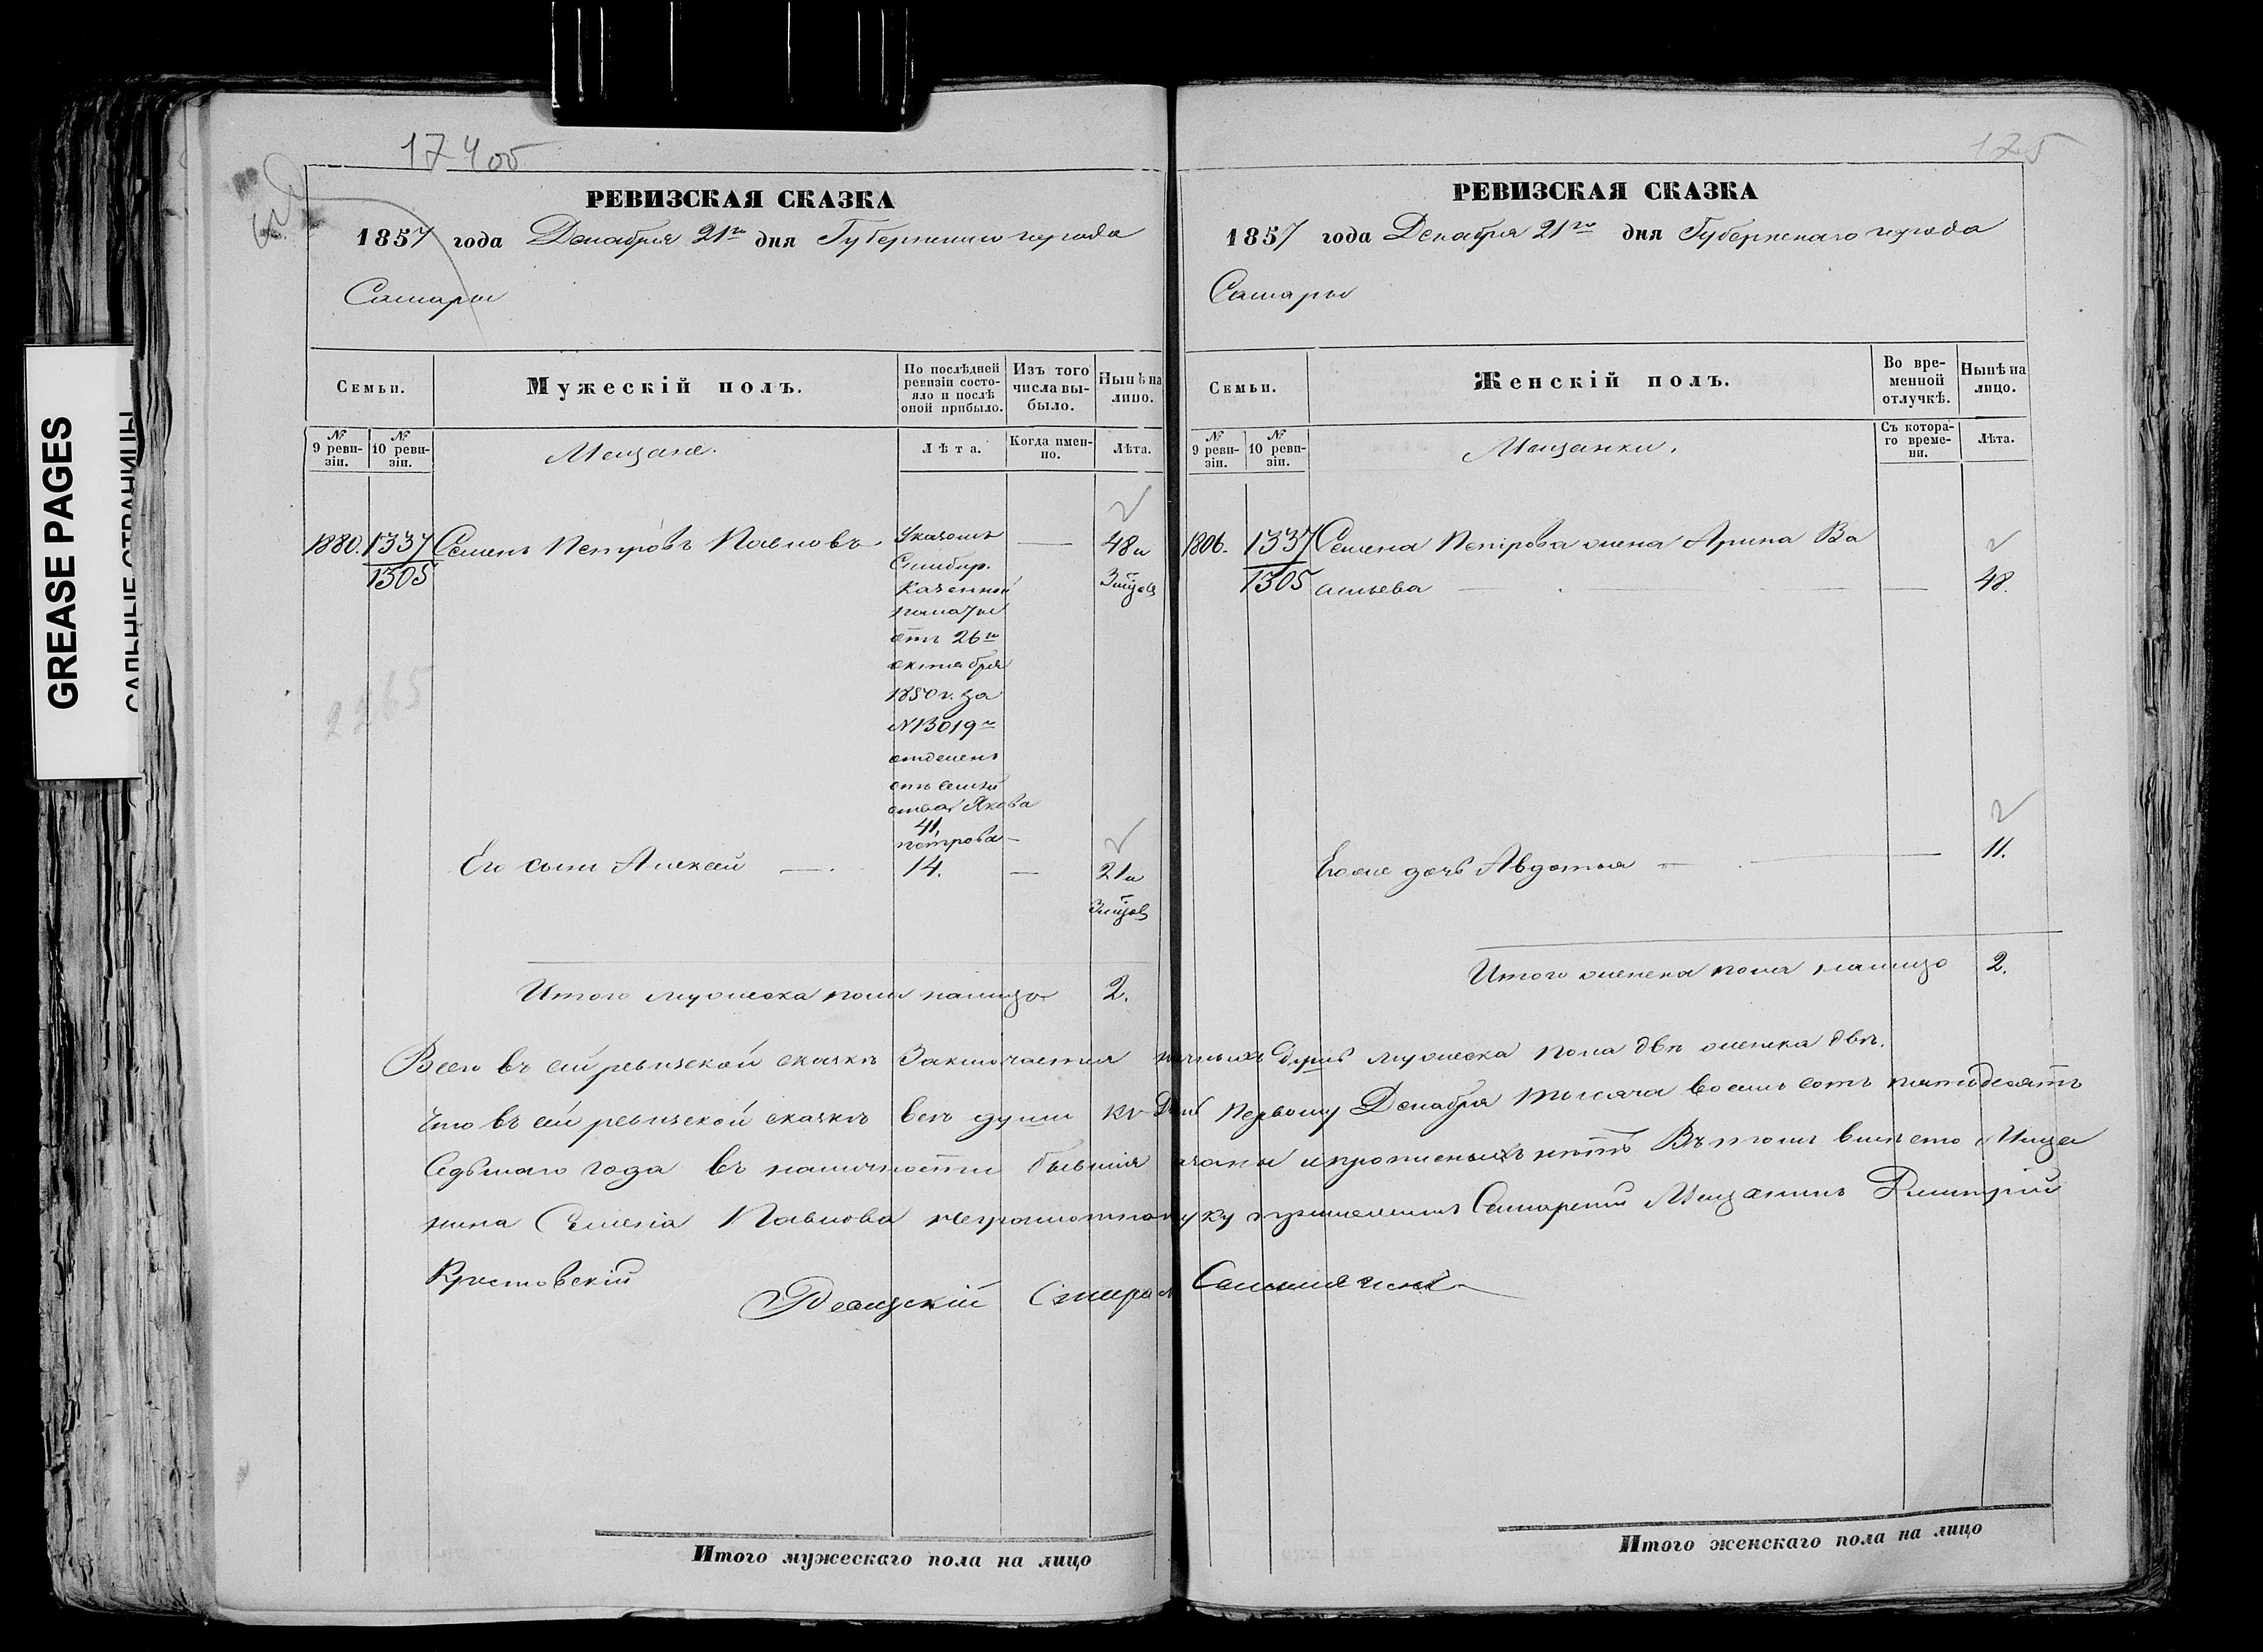 174 об
175
GREASE PAGES
САЛЬНЫЕ СТРАНИЦЫ
РЕВИЗСКАЯ СКАЗКА
1857 года Декабря 21го дня Губернскаго города
Самары
Семьи.
Мужескій полъ.
По послѣдней ревизіи состо-
яло и послѣ
оной прибыло.
Изъ того
числа вы-
было.
Нынѣ на
лицо.
№
9 реви-
зіи.
№
10 реви-
зіи.
Мещане.
Лѣта.
Когда имен-
но.
Лѣта.
1880. 1337 Семенъ Петровъ Павловъ
1305
Указомъ
Симбир.
Казенной
палаты
отъ 26го
октября
1850 г. за
№13019м
отделенъ
отъ семьи
Якова
41.
Петрова —
— 48 и
Его сынъ Алексей — 14. — 21 и
Итого мужеска пола налицо 2.
РЕВИЗСКАЯ СКАЗКА
1857 года Декабря 21го дня Губернскаго города
Самары
Семьи.
Женскій полъ.
Во вре-
менной
отлучкѣ.
Нынѣ на
лицо.
№
9 реви-
зіи.
№
10 реви-
зіи.
Мещанки.
Съ котора-
го време-
ни.
Лѣта.
1806. 1337 Семена Петрова жена Арина Ва
1305 сильева — — 48.
Его же дочь Авдотья — — 11.
Итого женска пола налицо 2.
Всего въ сей ревизской сказкѣ Заключается наличныхъ душъ мужеска пола двѣ женска двѣ.
Что въ сей ревизской сказкѣ всѣ души къ Первому Декабря тысяча восемь сотъ пятьдесятъ
Седьмаго года въ наличности бывшія и прописныхъ нѣтъ Въ томъ вмѣсто Меща
нина Семена Павлова неграмотнаго руку приложилъ Самарский Мещанинъ Дмитрий
Крестовский
Староста
Итого мужескаго пола на лицо
Итого женскаго пола на лицо